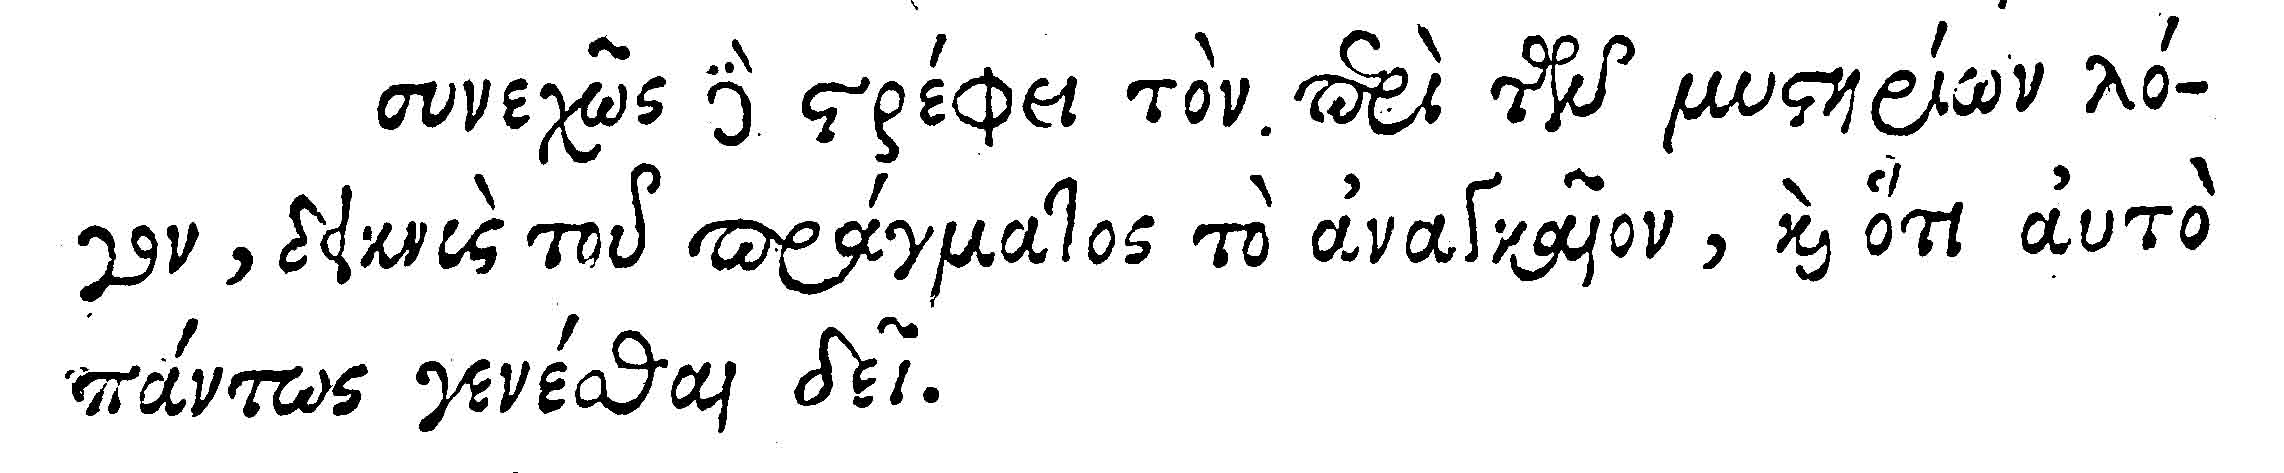 συνεχῶς δὲ στρέφει τὸν περὶ τῶν μυστηρίων λό-
γον, δεικνὺς τοῦ πράγματος τὸ ἀναγκαῖον, καὶ ὅτι ἀυτὸ
πάντως γενέσθαι δεῖ.